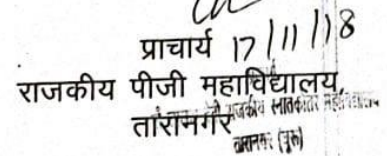 प्राचार्य 17/11/18
राजकीय पीजी महाविद्यालय,
तारानगर
राजकीय स्नातकोत्तर महाविद्यालय
तारानगर (चूरू)